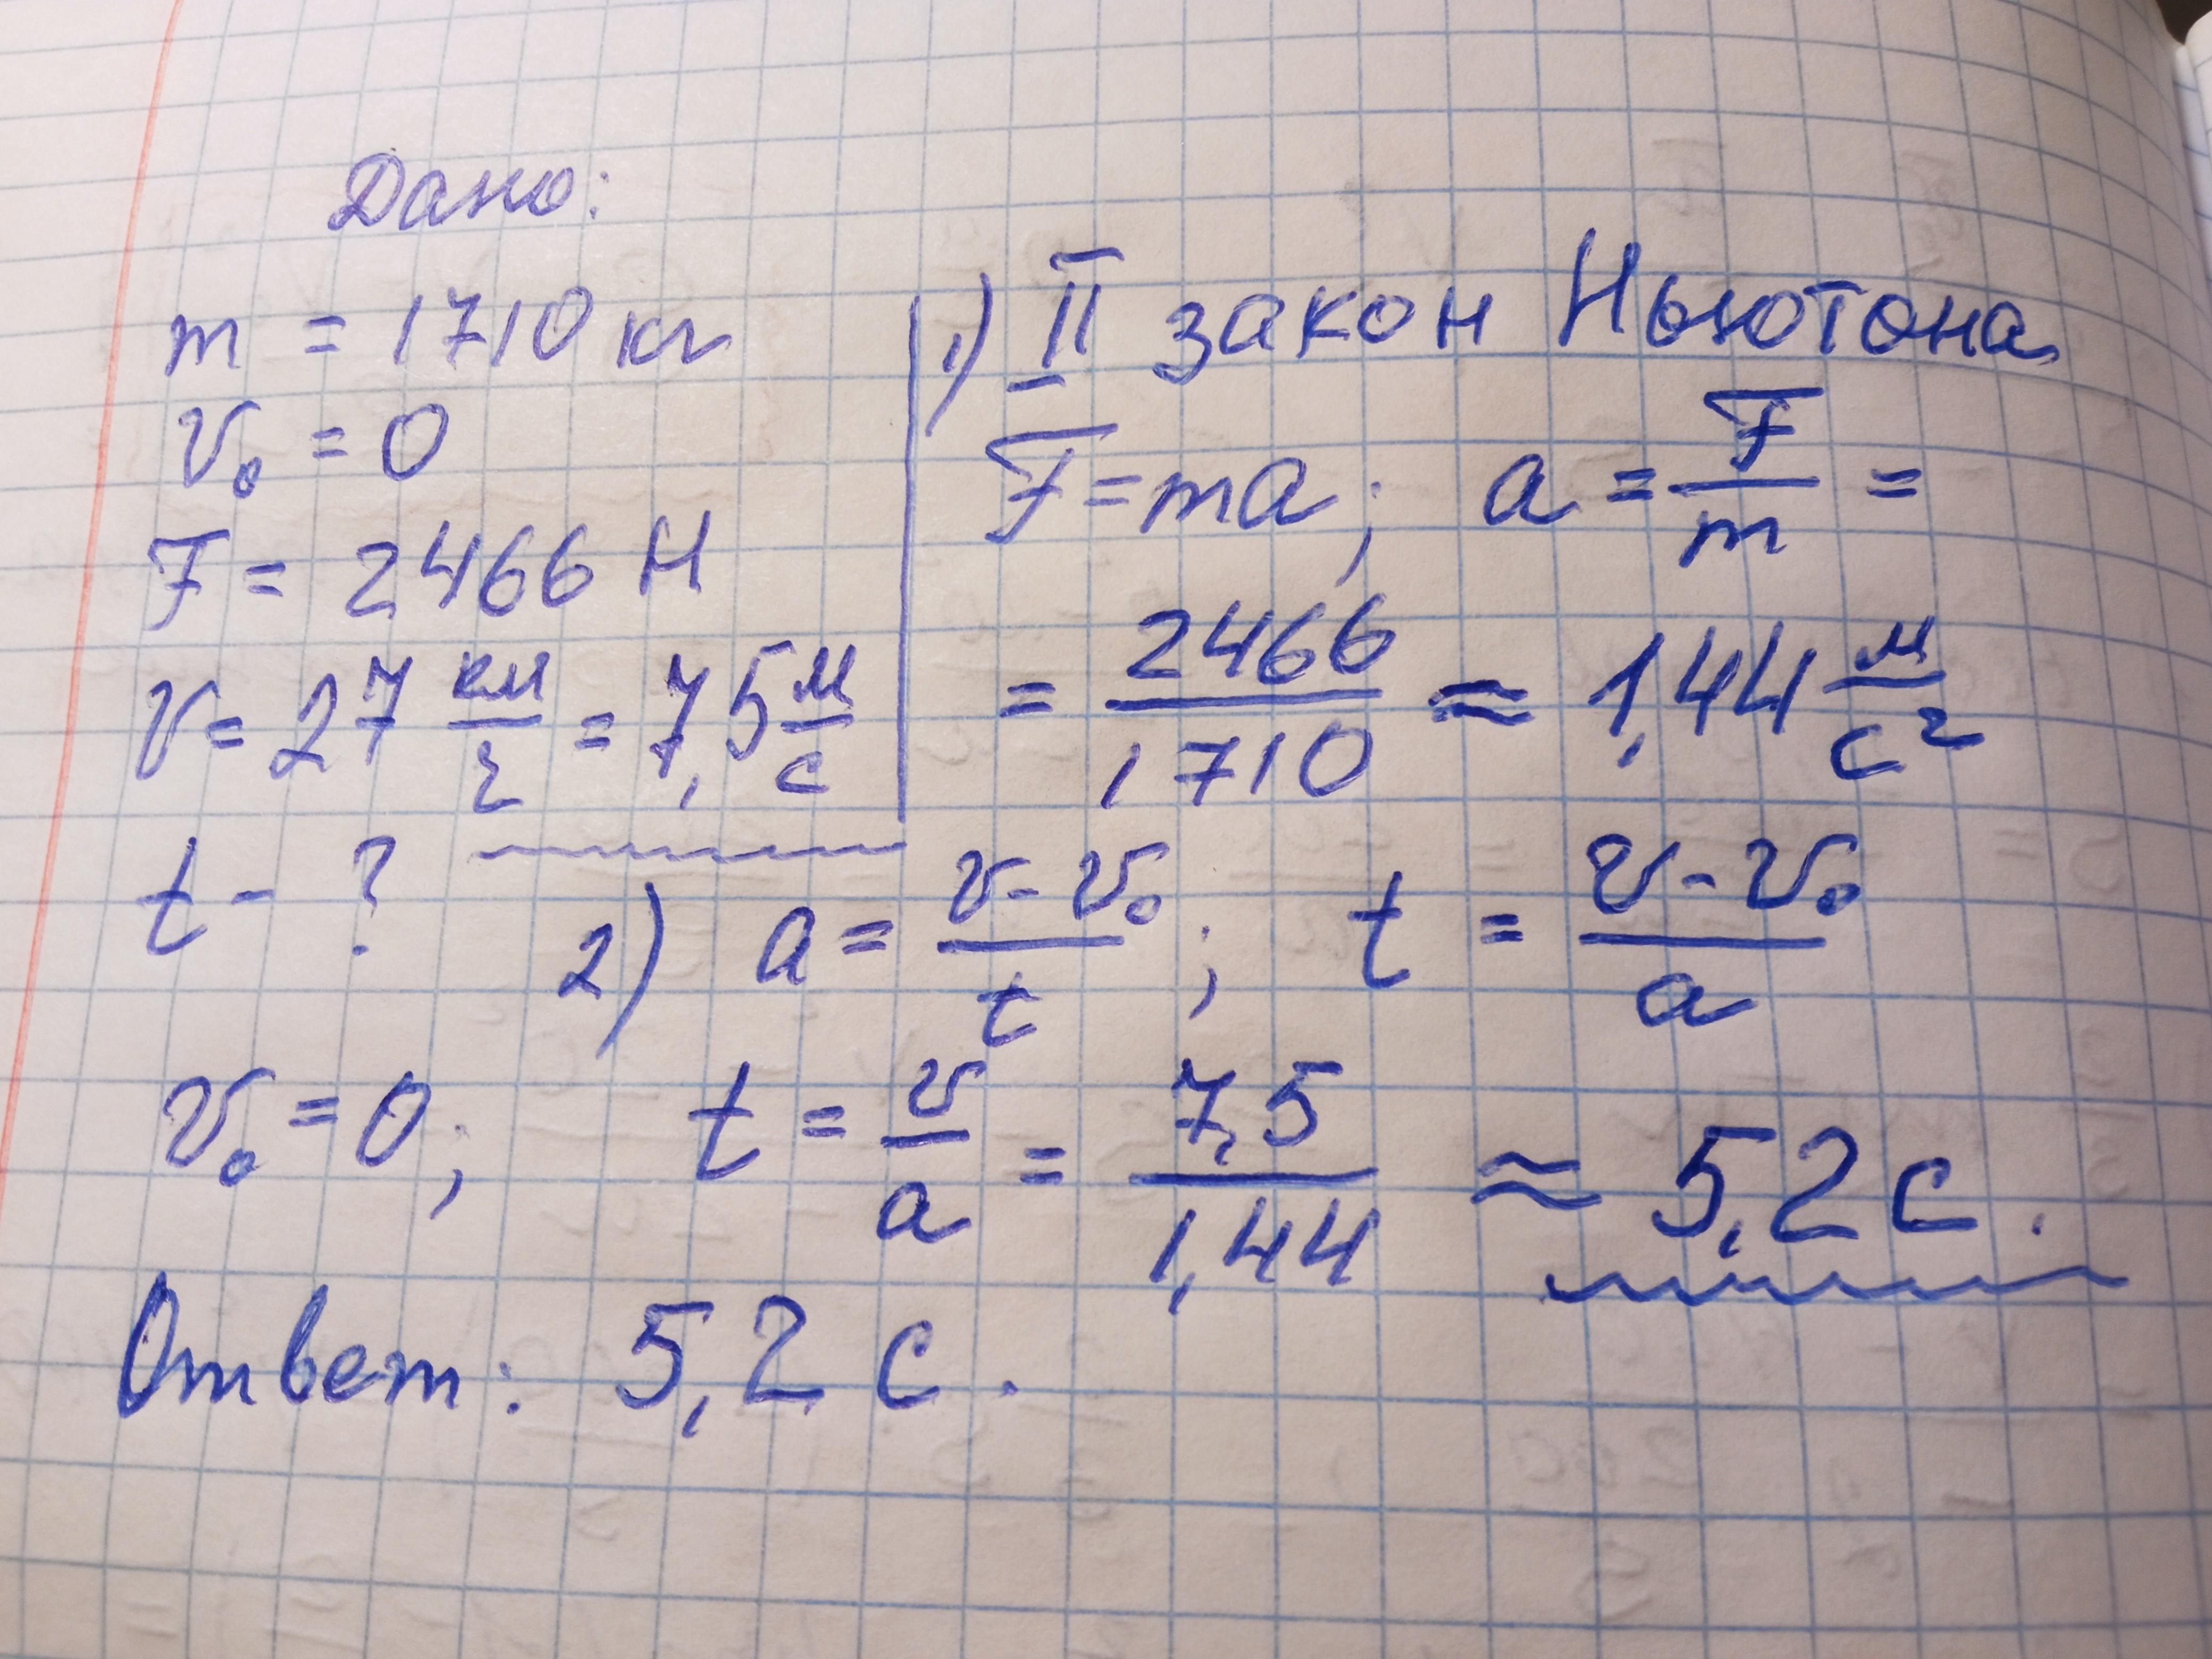 Дано:
m = 1710 кг
v₀ = 0
F = 2466 Н
v = 27 км/г = 7,5 м/с
t - ?
1) II закон Ньютона
F = ma; a = F/m =
= 2466/1710 ≈ 1,44 м/с²
2) a = v - v₀/t; t = v - v₀/a
v₀ = 0; t = v/a = 7,5/1,44 ≈ 5,2 с.
Ответ: 5,2 с.